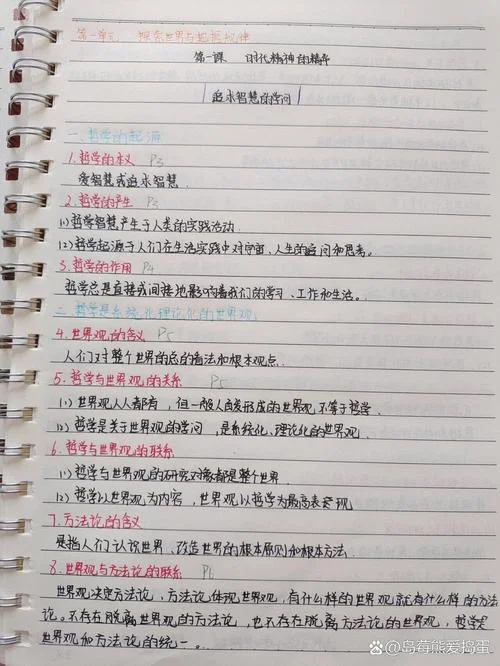 第一单元 探索世界与把握规律
第一课 时代精神的精华
追求智慧的学问
一、哲学的起源
1.哲学的本义 P3
爱智慧或追求智慧.
2.哲学的产生 P3
(1)哲学智慧产生于人类的实践活动.
(2)哲学起源于人们在生活实践中对宇宙、人生的追问和思考。
3.哲学的作用 P4
哲学总是直接或间接地影响着我们的学习、工作和生活。
二、哲学是系统化理论化的世界观
4.世界观的含义 P5
人们对整个世界的总的看法和根本观点.
5.哲学与世界观的关系 P5
(1)世界观人人都有,但一般人自发形成的世界观不等于哲学.
(2)哲学是关于世界观的学问,是系统化、理论化的世界观.
6.哲学与世界观的联系
(1)哲学与世界观的研究对象都是整个世界.
(2)哲学以世界观为内容,世界观以哲学为最高表现
7.方法论的含义
是指人们认识世界、改造世界的根本原则和根本方法.
8.世界观与方法论的联系 P6
世界观决定方法论,方法论体现世界观,有什么样的世界观就有什么样的方法
论。不存在脱离世界观的方法论,也不存在脱离方法论的世界观,哲学是
世界观和方法论的统一。
百家号/岛莓熊爱捣蛋